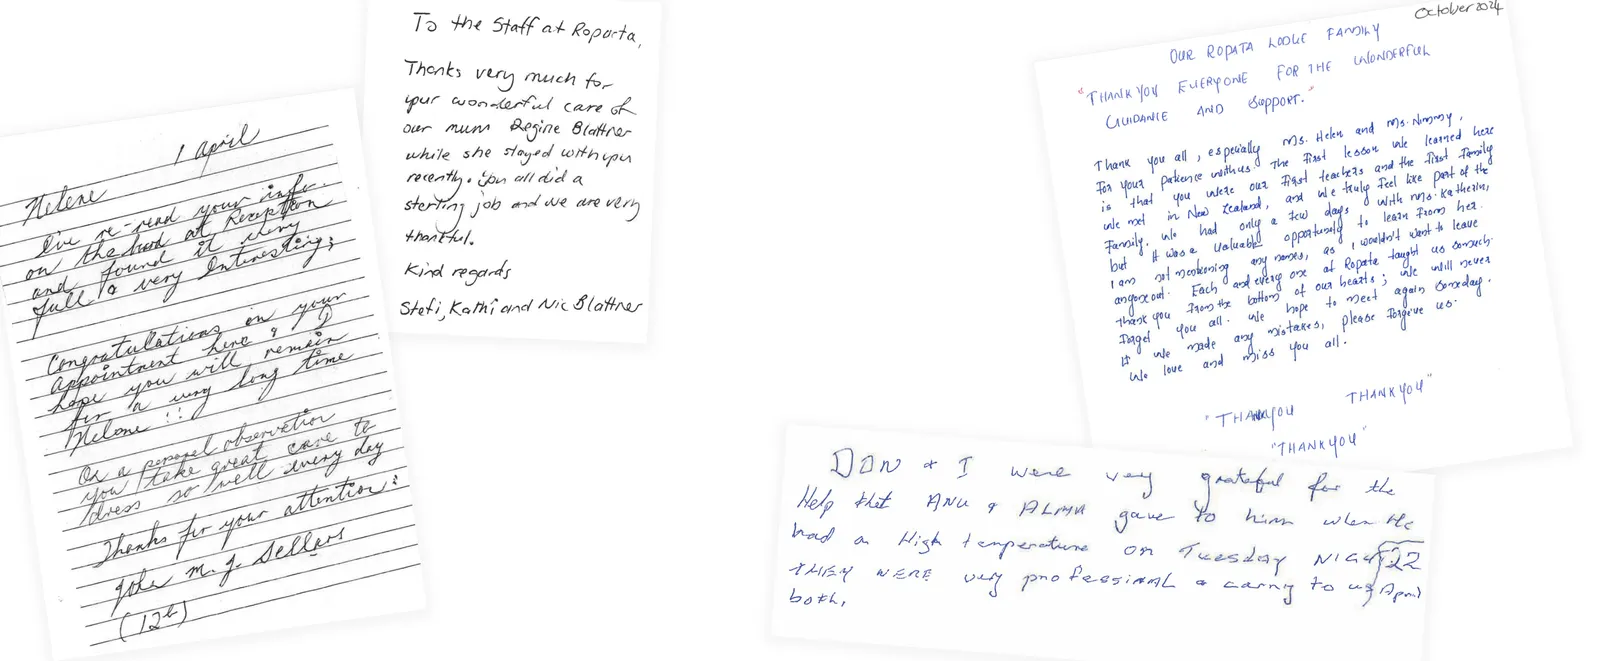 1 April
Helene
I've re-read your info.
on the board at Reception
and found it very
full & very Interesting;
Congratulations on your
appointment here & I
hope you will remain
for a very long time
Helene !!
On a personal observation
you take great care to
dress so well every day
Thanks for your attention:
John M. J. Sellars
(12b)
To the Staff at Roparta,
Thanks very much for
your wonderful care of
our mum Regine Blattner
while she stayed with you
recently. You all did a
sterling job and we are very
thankful.
Kind regards
Stefi, Kathi and Nic Blattner
October 2024
OUR ROPATA LODGE FAMILY
"THANK YOU EVERYONE FOR THE WONDERFUL
GUIDANCE AND SUPPORT."
Thank you all, especially Ms. Helen and Ms. Nimmy,
For your patience with us. The first lesson we learned here
is that you were our first teachers and the first family
we met in New Zealand, and we truly feel like part of the
family. We had only a few days with Ms. Katherin,
but it was a valuable opportunity to learn from her.
I am not mentioning any names, as I wouldn't want to leave
anyone out. Each and every one at Ropata taught us so much.
Thank you from the bottom of our hearts; we will never
forget you all. We hope to meet again someday.
If we made any mistakes, please forgive us.
We love and miss you all.
"THANKYOU THANKYOU"
"THANKYOU"
DON & I were very grateful for the
Help that ANU & ALMA gave to him when He
had a High temperature on Tuesday NIGHT 22
April
THEY WERE very professional & caring to us
both.